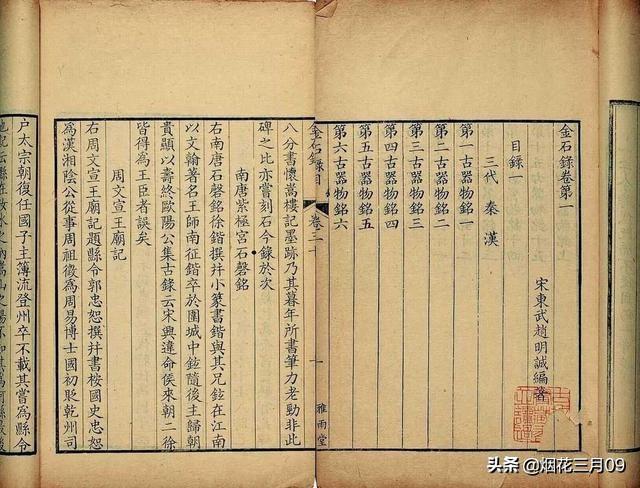 金石錄卷第一
目錄一
三代 秦 漢
宋東武趙明誠編著
第一古器物銘一
第二古器物銘二
第三古器物銘三
第四古器物銘四
第五古器物銘五
第六古器物銘六
金石錄目
雅雨堂
卷三十
八分書懷嵩樓記墨跡乃其暮年所書筆力老勁非此
碑之比亦嘗刻石今錄於次
南唐紫極宮石磬銘
右南唐石磬銘徐鍇撰并小篆書鍇與其兄鉉在江南
以文翰著名王師南征鍇卒於圍城中鉉隨後主歸朝
貴顯以壽終歐陽公集古錄云宋興違命侯來朝二徐
皆得為王臣者誤矣
周文宣王廟記
右周文宣王廟記題縣令郭忠恕撰并書按國史忠恕
為漢湘陰公從事周祖徵為周易博士國初貶乾州司
戶太宗朝復任國子主簿流登州卒不載其嘗為縣令
头条 @烟花三月09